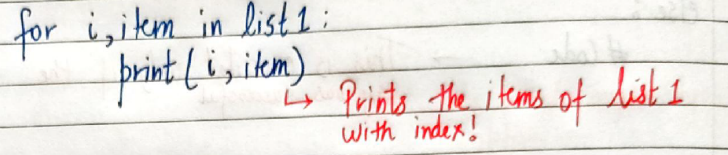 for i, item in list 1 :
print ( i, item )
↳ Prints the items of list 1
with index!